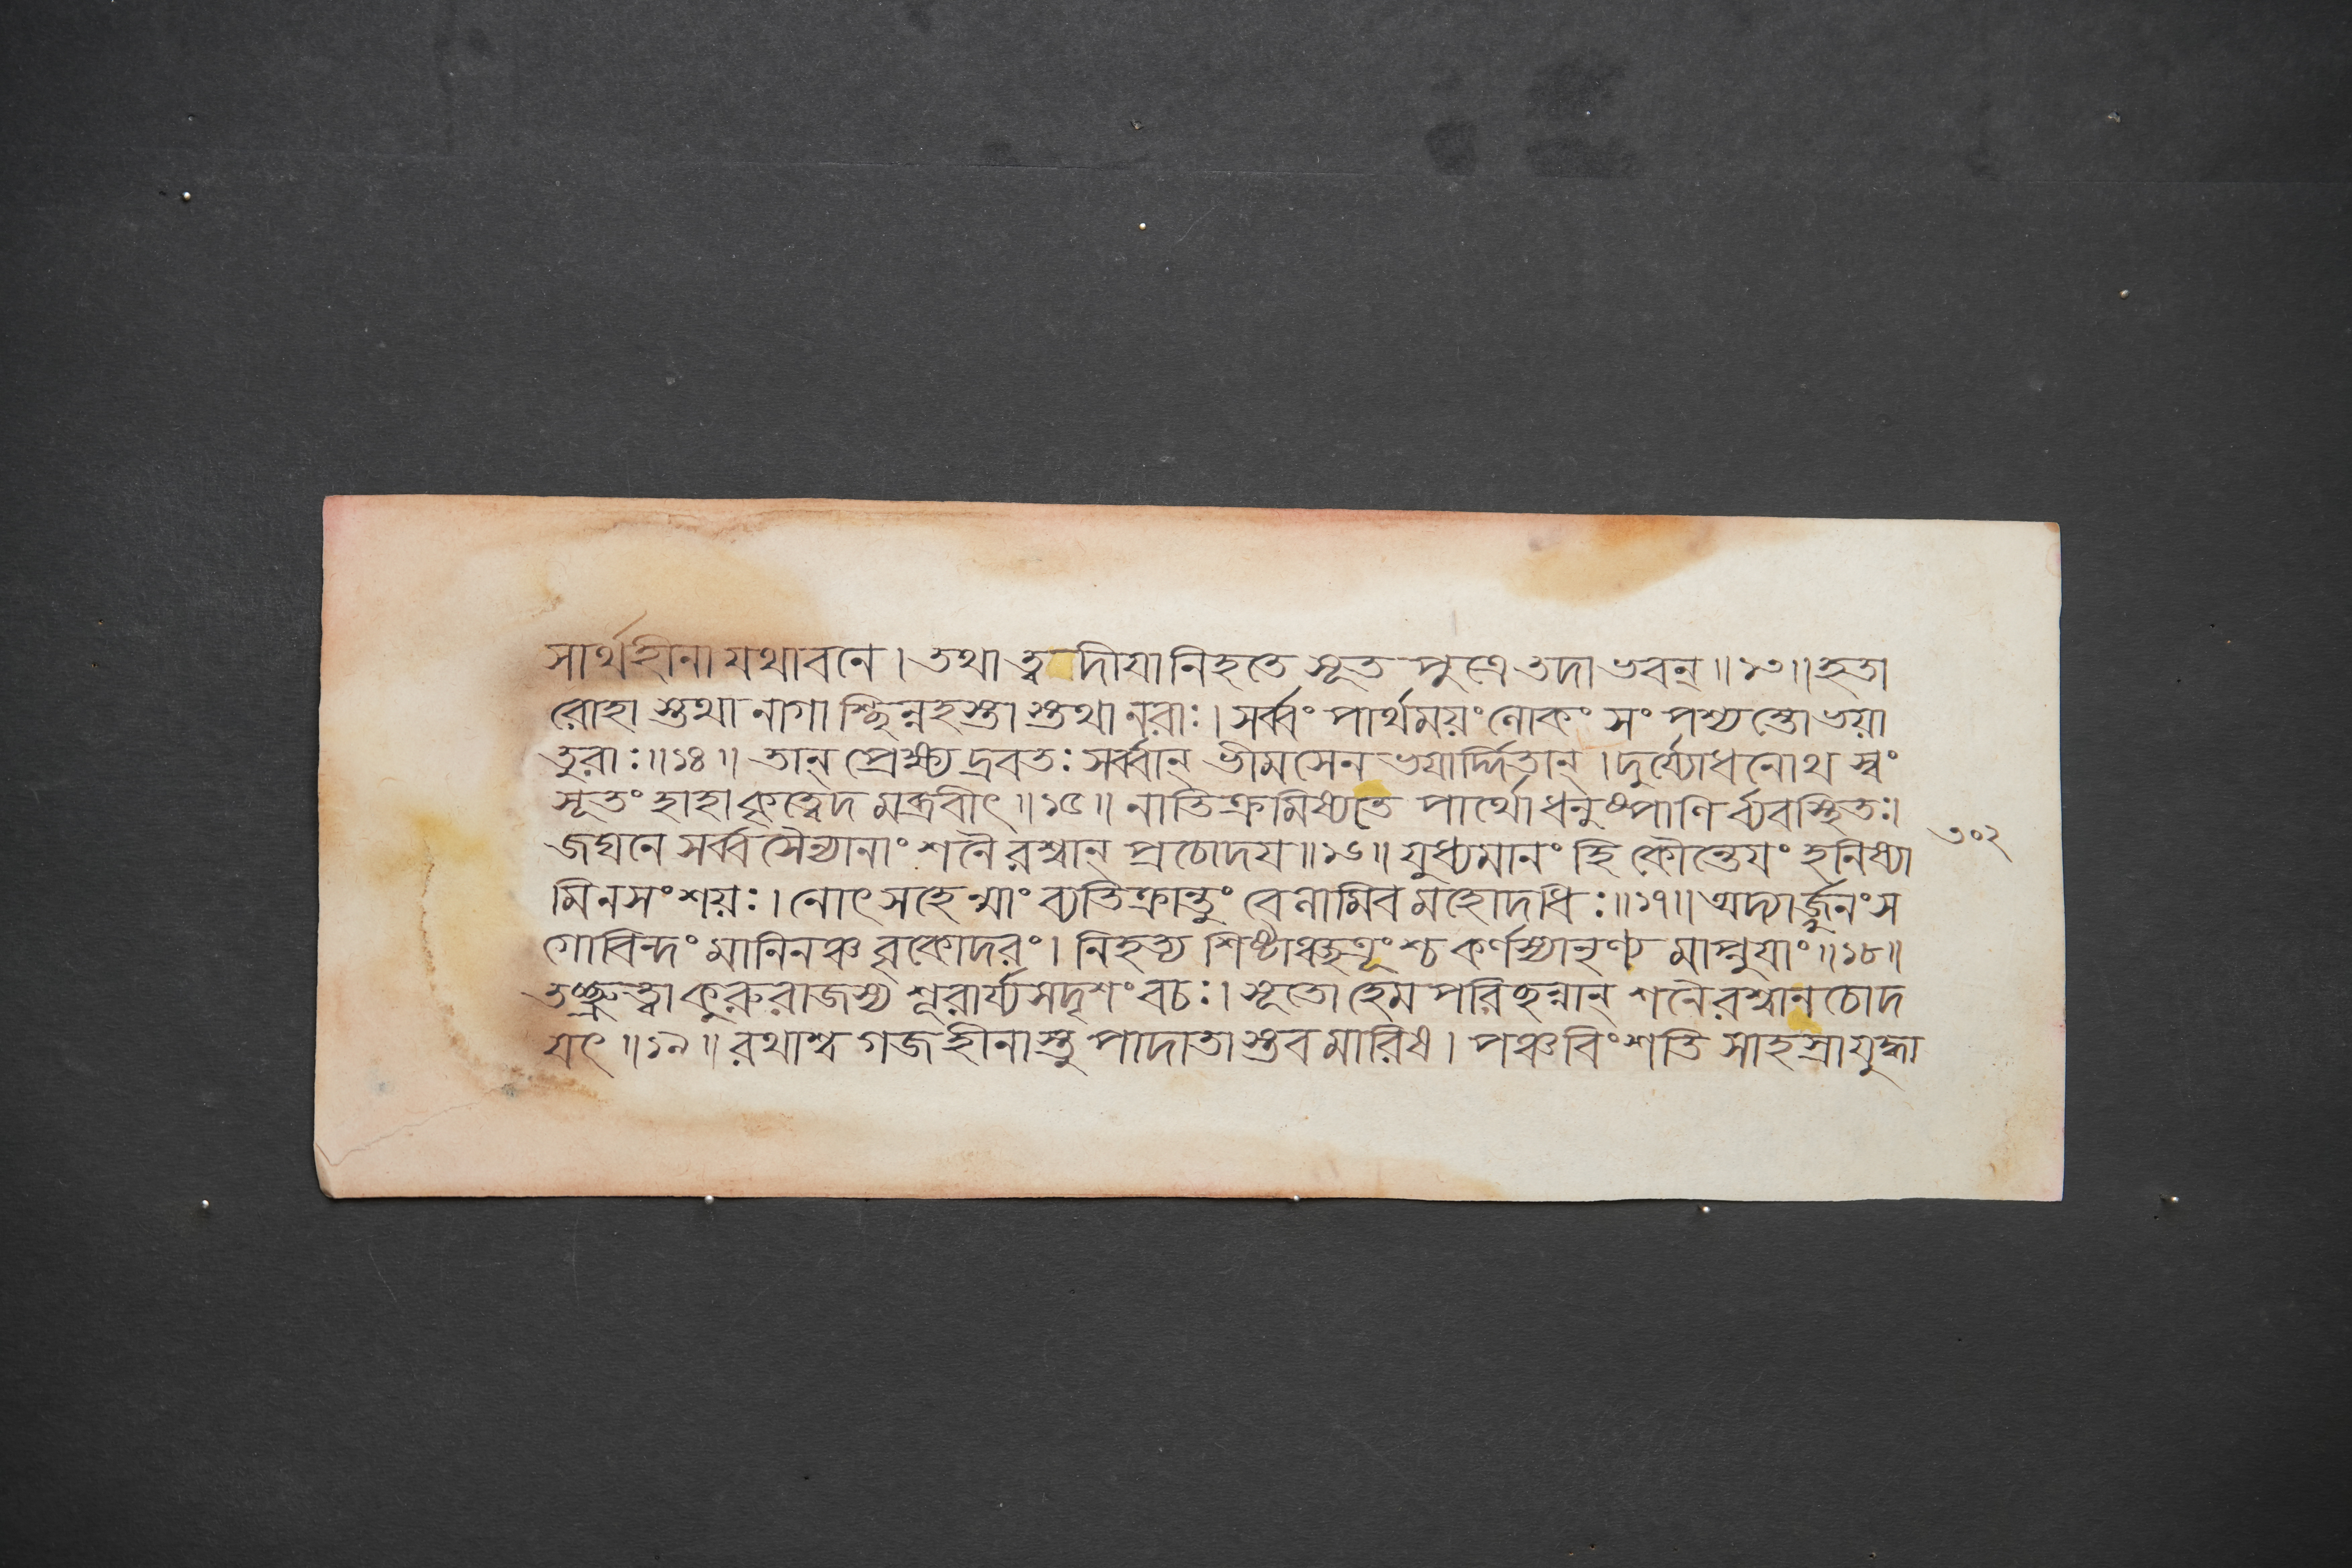 সার্থহীনা যথাবনে। তথা ত্বদীয়া নিহতে সূত পুত্রে তদা ভবন্॥১৩॥ হতা
রোহা স্তথা নাগা শ্ছিন্নহস্তা স্তথা নরাঃ। সর্ব্বং পার্থময়ং লোকং সং পশ্যন্তো ভয়া
তুরাঃ॥১৪॥ তান্ প্রেক্ষ্য দ্রবতঃ সর্ব্বান্ ভীমসেন ভয়ার্দ্দিতান্। দুর্য্যোধনোথ স্বং
সূতং হাহা কৃত্বেদ মব্রবীৎ॥১৫॥ নাতিক্রমিষ্যতে পার্থো ধনুষ্পাণি র্ব্যবস্থিতঃ।
জঘনে সর্ব্ব সৈন্যানাং শনৈ রশ্বান্ প্রচোদয়॥১৬॥ যুধ্যমানং হি কৌন্তেয়ং হনিষ্যা
৩০২
মি ন সংশয়ঃ। নোৎ সহেন্মাং ব্যতিক্রান্তুং বেলামিব মহোদধিঃ॥১৭॥ অদ্যার্জ্জুনং স
গোবিন্দং মানিনঞ্চ বৃকোদরং। নিহত্য শিষ্টাঞ্ছত্রূংশ্চ কর্ণস্যানৃণ্য মাপ্নুয়াং॥১৮॥
তচ্ছ্রুত্বা কুরুরাজস্য শূরার্য্য সদৃশং বচঃ। সূতো হেম পরিচ্ছন্নান্ শনৈরশ্বান চোদ
য়ৎ॥১৯॥ রথাশ্ব গজ হীনাস্তু পাদাতা স্তব মারিষ। পঞ্চবিংশতি সাহস্রা যুদ্ধা